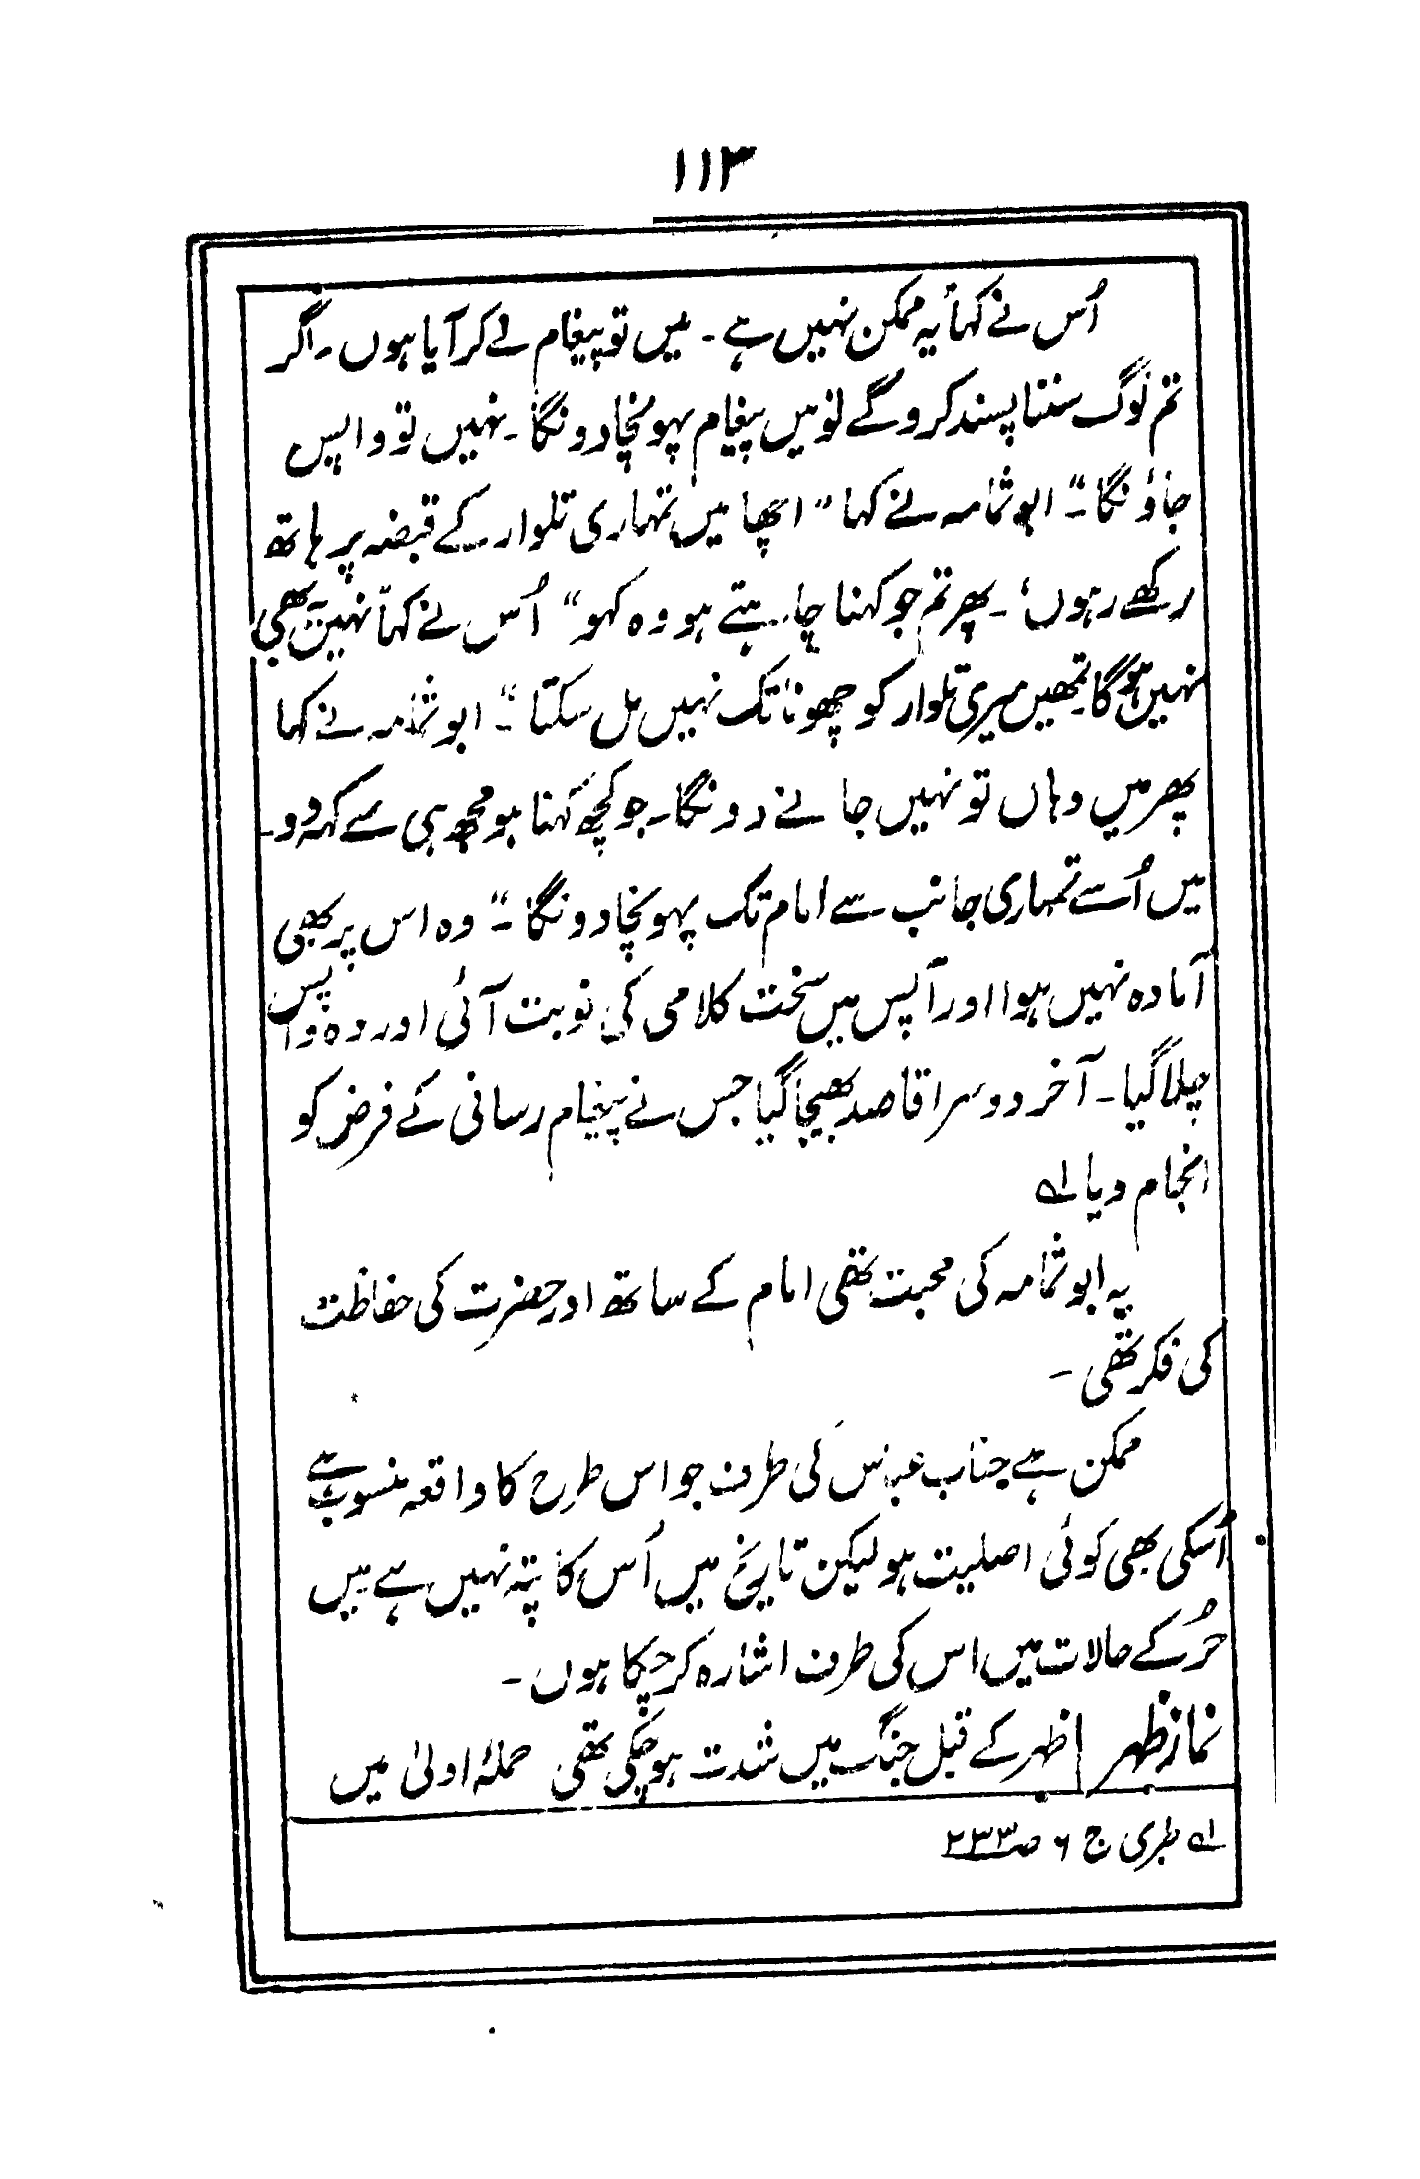 ۱۱۳
اُس نے کہا "یہ ممکن نہیں ہے ۔ میں تو پیغام لے کر آیا ہوں ۔ اگر
تم لوگ سننا پسند کرو گے تو میں پیغام پہونچا دونگا ۔ نہیں تو واپس
جاؤنگا ۔" ابو ثمامہ نے کہا "اچھا میں تمہاری تلوار کے قبضہ پر ہاتھ
رکھے رہوں ۔ پھر تم جو کہنا چاہتے ہو وہ کہو" اُس نے کہا "نہیں یہ بھی
نہیں ہوگا تمھیں میری تلوار کو چھونا تک نہیں مل سکتا ۔" ابو ثمامہ نے کہا
پھر میں وہاں تو نہیں جانے دونگا ۔ جو کچھ کہنا ہو مجھ ہی سے کہدو ۔
میں اُسے تمہاری جانب سے امام تک پہونچا دونگا ۔" وہ اس پر بھی
آمادہ نہیں ہوا اور آپس میں سخت کلامی کی نوبت آئی اور وہ واپس
چلا گیا ۔ آخر دوسرا قاصد بھیجا گیا جس نے پیغام رسانی کے فرض کو
انجام دیا لے
یہ ابو ثمامہ کی محبت تھی امام کے ساتھ اور حضرت کی حفاظت
کی فکر تھی ۔
ممکن ہے جناب عباس کی طرف جو اس طرح کا واقعہ منسوب ہے
اُسکی بھی کوئی اصلیت ہو لیکن تاریخ میں اُس کا پتہ نہیں ہے میں
حُر کے حالات میں اس کی طرف اشارہ کر چکا ہوں ۔
نماز ظہر | ظہر کے قبل جنگ میں شدت ہو چکی تھی حملۂ اولیٰ میں
لے طبری ج ۶ ص ۲۳۳